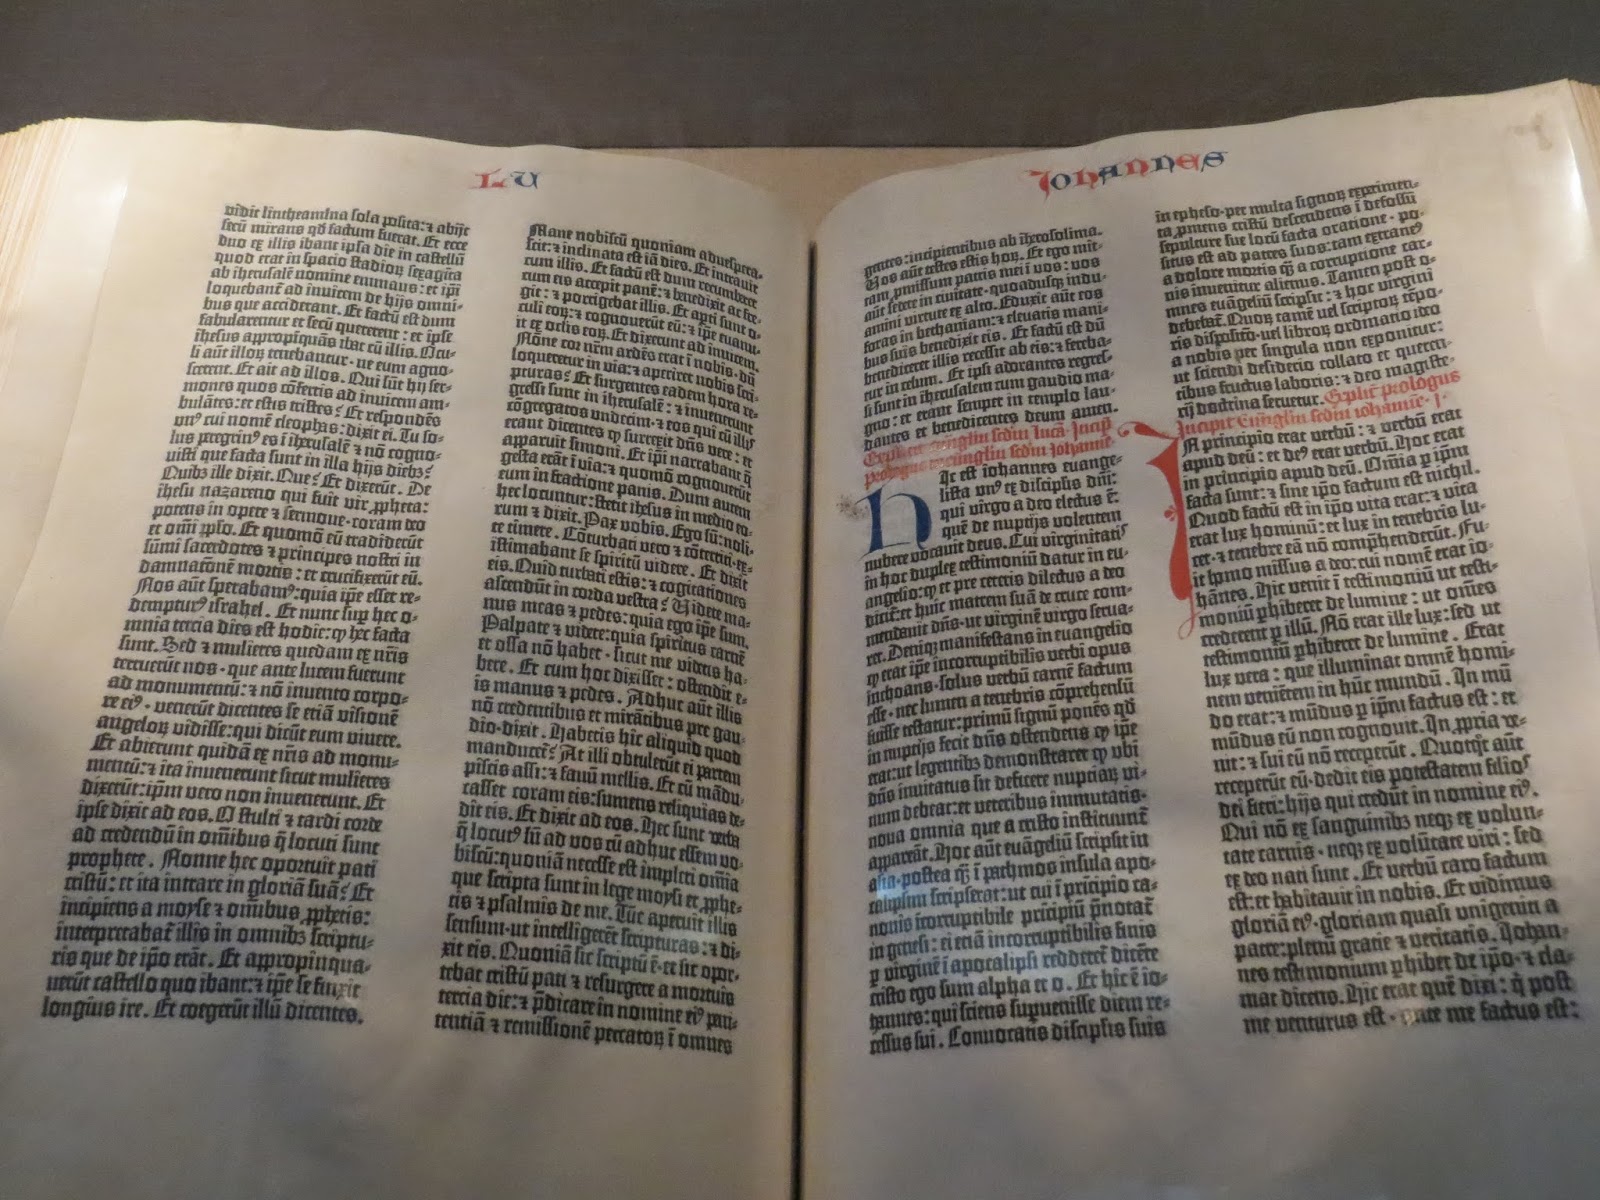 LU
vidit lintheamina sola posita: ⁊ abijt
secū mirans qd̄ factum fuerat. Et ecce
duo ex illis ibant ipsa die in castellū
quod erat in spacio stadioꝝ sexaginta
ab iherusalē nomine emmaus: et ip̄i
loquebant̄ ad invicem de hijs omni-
bus que acciderant. Et factū est dum
fabularentur et secū quererent: et ip̄e
ihesus appropīquās ibat cū illis. Ocu-
li aūt illoꝝ tenebantur· ne eum agno-
scerent. Et ait ad illos. Qui sūt hij ser-
mones quos cōfertis ad invicem am-
bulātes: et estis tristes? Et respondēs
unꝰ cui nomē cleophas: dixit ei. Tu so-
lus peregrinꝰ es ī iherusalē ⁊ nō cogno-
visti que facta sunt in illa hijs diebꝫ?
Quibꝫ ille dixit. Que? Et dixerūt. De
ihesu nazareno qui fuit vir ꝓpheta:
potens in opere ⁊ sermone· coram deo
et omī ꝓplo. Et quomō eū tradiderūt
sūmi sacerdotes ⁊ principes nostri in
damnationē mortis: et crucifixerūt eū.
Nos aūt sperabamꝰ: quia ip̄e esset re-
dempturꝰ israhel. Et nunc suꝑ hec o-
mnia tercia dies est hodie: ꝙ hec facta
sunt. Sed ⁊ mulieres quedam ex nr̄is
terruerūt nos· que ante lucem fuerunt
ad monumentū: ⁊ nō invento corpo-
re eiꝰ· venerūt dicentes se etiā visionē
angeloꝝ vidisse: qui dicūt eum vivere.
Et abierunt quidā ex nr̄is ad monu-
mentū: ⁊ ita invenerunt sicut mulieres
dixerūt: ip̄m vero non invenerunt. Et
ipse dixit ad eos. O stulti ⁊ tardi corde
ad credendū in om̄ibus q̄ locuti sunt
prophete. Nonne hec oportuit pati
cristū: et ita intrare in gloriā suā? Et
incipiens a moyse ⁊ om̄ibus ꝓphetis:
interpretabat̄ illis in omnibꝫ scriptu-
ris que de ip̄o erāt. Et appropinqua-
verūt castello quo ibant: ⁊ ip̄e se finxit
longius ire. Et coegerūt illū dicentes.
Mane nobiscū quoniam advespera-
scit: ⁊ inclinata est iā dies. Et intravit
cum illis. Et factū est dum recumberet
cum eis accepit panē: ⁊ benedixit ac fre-
git: ⁊ porrigebat illis. Et aperti sunt o-
culi eoꝝ: ⁊ cognoverūt eū: ⁊ ip̄e evanu-
it ex oclis eoꝝ. Et dixerunt ad invicem.
Nōne cor nr̄m ardēs erat ī nobis· dū
loqueretur in via: ⁊ aperiret nobis scri-
pturas? Et surgentes eadem hora re-
gressi sunt in iherusalē: ⁊ invenerunt
cōgregatos undecim· ⁊ eos qui cū illis
erant dicentes ꝙ surrexit dn̄s vere: et
apparuit simoni. Et ip̄i narrabant q̄
gesta erāt ī via: ⁊ quomō cognoverūt
eum in fractione panis. Dum autem
hec locuntur: stetit ihesus in medio eo-
rum ⁊ dixit. Pax vobis. Ego sū: noli-
te timere. Cōturbati vero ⁊ cōterriti· ex-
istimabant se spiritū videre. Et dixit
eis. Quid turbati estis: ⁊ cogitationes
ascendūt in corda vestra? Videte ma-
nus meas ⁊ pedes: quia ego ip̄e sum.
Palpate ⁊ videte: quia spiritus carnē
et ossa nō habet· sicut me videtis ha-
bere. Et cum hoc dixisset: ostendit e-
is manus ⁊ pedes. Adhuc aūt illis
nō credentibus et mirātibus pre gau-
dio· dixit. Habetis hic aliquid quod
manducet̄? At illi obtulerūt ei partem
piscis assi: ⁊ favū mellis. Et cū mādu-
casset coram eis: sumens reliquias de-
dit eis. Et dixit ad eos. Hec sunt verba
q̄ locutꝰ sū ad vos cū adhuc essem vo-
biscū: quoniā necesse est impleri om̄ia
que scripta sunt in lege moysi et ꝓphe-
tis ⁊ psalmis de me. Tūc aperuit illis
sensum· ut intelligerēt scripturas: ⁊ di-
xit eis. Quoniā sic scriptū ē· et sic opor-
tebat cristū pati ⁊ resurgere a mortuis
tercia die: ⁊ p̄dicare in nomine eiꝰ peni-
tentiā ⁊ remissionē peccatoꝝ ī omnes
IOHANNES
gentes: incipientibus ab iherosolima.
Vos aūt testes estis hoꝝ. Et ego mit-
tam ꝓmissum patris mei ī vos: vos
aūt sedete in civitate· quoadusqꝫ indu-
amini virtute ex alto. Eduxit aūt eos
foras in bethaniam: ⁊ elevatis mani-
bus suis benedixit eis. Et factū est dū
benediceret illis recessit ab eis: ⁊ fereba-
tur in celum. Et ipsi adorantes regres-
si sunt in iherusalem cum gaudio ma-
gno: et erant semper in templo lau-
dantes et benedicentes deum amen.
Explicit ewangliū scdm̄ lucā· Incipit
prologus in ewangliū scdm̄ iohannē·
Hic est iohannes euange-
lista unꝰ ex discip̄lis dn̄i:
qui virgo a deo electus ē:
quē de nuptijs volentem
nubere vocavit deus. Cui virginitatꝭ
in hoc duplex testimoniū datur in eu-
angelio: ꝙ et pre ceteris dilectus a deo
dicit̄: et huic matrem suā de cruce com-
mendavit dn̄s· ut virginē virgo serva-
ret. Deniqꝫ manifestans in euangelio
ꝙ erat ip̄e incorruptibilis verbi opus
inchoans· solus verbū carnē factum
esse· nec lumen a tenebris cōprehensū
fuisse testatur: primū signū ponēs qd̄
in nuptijs fecit dn̄s ostendens ꝙ ip̄e
erat: ut legentibꝫ demonstraret ꝙ ubi
dn̄s invitatus sit deficere nuptiaꝝ vi-
num debeat: et veteribus immutatis·
nova omnia que a cristo instituunt̄
appareāt. Hoc aūt euāgeliū scripsit in
asia· postea q̄ꝫ ī pathmos insula apo-
calipsim scripserat: ut cui ī pͥncipio ca-
nonis īcorruptibile pͥncipiū p̄notat̄
in genesi: ei etiā incorruptibilis finis
ꝑ virginē ī apocalipsi redderet̄ dicēte
cristo ego sum alpha et o. Et hic ē io-
hannes: qui sciens suꝑvenisse diem re-
cessus sui. Convocatis discipl̄is suis
in epheso· per multa signoꝝ exꝑimen-
ta ꝓmens cristū descendens ī defossū
sepulture sue locū facta oratione· po-
situs est ad patres suos: tam extraneꝰ
a dolore mortis q̄ꝫ a corruptione car-
nis invenitur alienus. Tamen post o-
mnes euāgeliū scripsit: ⁊ hoc virgini
debebat̄. Quoꝝ tamē vel scriptoꝝ tēpo-
ris dispositō· vel libroꝝ ordinatio ideo
a nobis per singula non exponitur:
ut sciendi desiderio collato et queren-
tibus fructus laboris: ⁊ deo magiste-
rij doctrina servetur. Explic̄ prologus
Incipit Ewngliū scdm̄ iohannē· I·
In principio erat verbū: ⁊ verbū erat
apud deū: et deꝰ erat verbū. Hoc erat
in principio apud deū. Om̄ia ꝑ ip̄m
facta sunt: ⁊ sine ip̄o factum est nichil.
Quod factū est in ip̄o vita erat: ⁊ vita
erat lux hominū: et lux in tenebris lu-
cet· ⁊ tenebre eā nō comp̄henderūt. Fu-
it homo missus a deo: cui nomē erat io-
hānes. Hic venit ī testimoniū ut testi-
moniū ꝑhiberet de lumine· ut om̄es
crederent ꝑ illū. Nō erat ille lux: sed ut
testimoniū ꝑhiberet de lumine. Erat
lux vera: que illuminat omnē homi-
nem veniētem in hūc mundū. In mū-
do erat: ⁊ mūdus ꝑ ip̄m factus est: et
mūdus eū non cognovit. In ꝓpria ve-
nit: ⁊ sui eū nō receperūt. Quotqͦt aūt
receperūt eū· dedit eis potestatem filios
dei fieri: hijs qui credūt in nomine eiꝰ.
Qui nō ex sanguinibꝫ neqꝫ ex volun-
tate carnis· neqꝫ ex volūtate viri: sed
ex deo nati sunt. Et verbū caro factum
est: et habitavit in nobis. Et vidimus
gloriā eiꝰ· gloriam quasi unigeniti a
patre: plenū gratie ⁊ veritatis. Iohan-
nes testimonium ꝑhibet de ip̄o· ⁊ cla-
mat dicens. Hic erat quē dixi: q̄ post
me venturus est· ante me factus est: